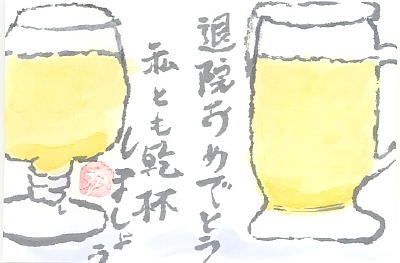 退院おめでとう
私とも乾杯
しましょう